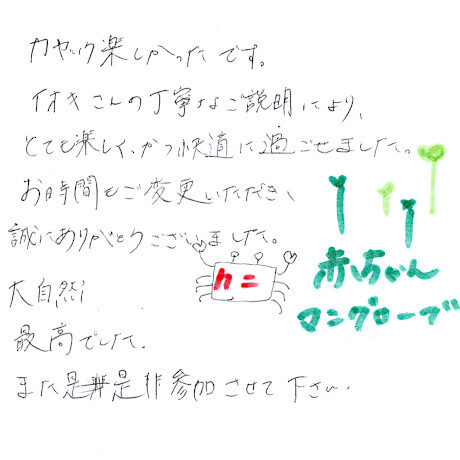 カヤック楽しかったです。
イオキさんの丁寧なご説明により、
とても楽しく、かつ快適に過ごせました。
お時間もご変更いただき、
誠にありがとうございました。
カニ
赤ちゃん
マングローブ
大自然!
最高でした。
また是非参加させて下さい。